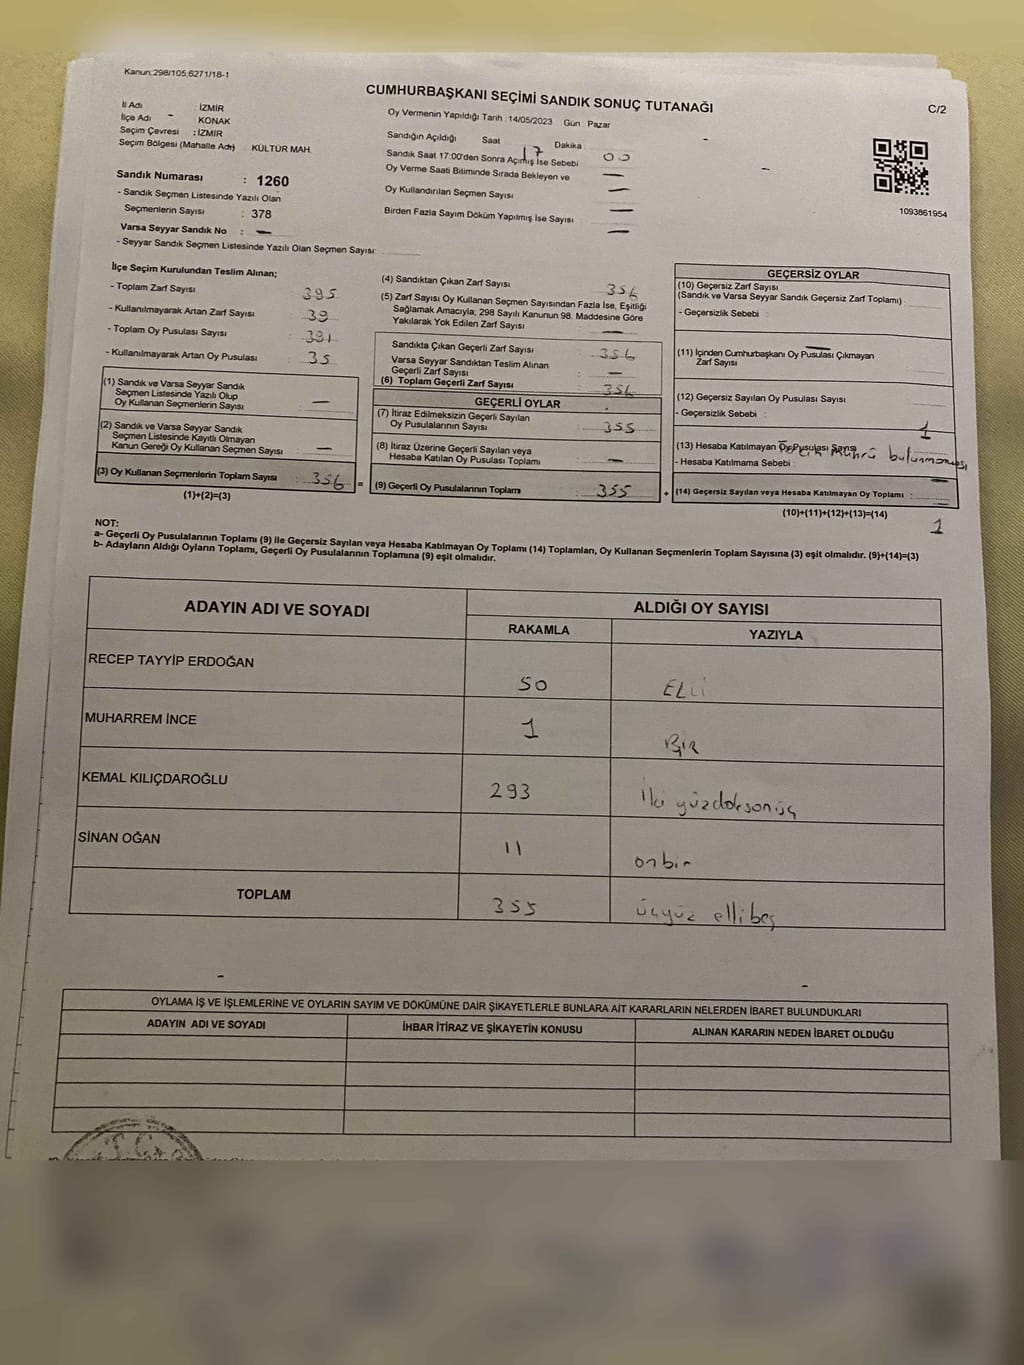 Kanun:298/105,6271/18-1
CUMHURBAŞKANI SEÇİMİ SANDIK SONUÇ TUTANAĞI
C/2
İl Adı : İZMİR
İlçe Adı : KONAK
Seçim Çevresi : İZMİR
Seçim Bölgesi (Mahalle Adı) : KÜLTÜR MAH.
Sandık Numarası : 1260
- Sandık Seçmen Listesinde Yazılı Olan
Seçmenlerin Sayısı : 378
Varsa Seyyar Sandık No : —
- Seyyar Sandık Seçmen Listesinde Yazılı Olan Seçmen Sayısı:
Oy Vermenin Yapıldığı Tarih : 14/05/2023 Gün : Pazar
Sandığın Açıldığı Saat 17 Dakika 00
Sandık Saat 17:00'den Sonra Açılmış İse Sebebi —
Oy Verme Saati Bitiminde Sırada Bekleyen ve
Oy Kullandırılan Seçmen Sayısı —
Birden Fazla Sayım Döküm Yapılmış İse Sayısı —
1093861954
İlçe Seçim Kurulundan Teslim Alınan;
- Toplam Zarf Sayısı : 395
- Kullanılmayarak Artan Zarf Sayısı : 39
- Toplam Oy Pusulası Sayısı : 391
- Kullanılmayarak Artan Oy Pusulası : 35
(1) Sandık ve Varsa Seyyar Sandık
Seçmen Listesinde Yazılı Olup
Oy Kullanan Seçmenlerin Sayısı : —
(2) Sandık ve Varsa Seyyar Sandık
Seçmen Listesinde Kayıtlı Olmayan
Kanun Gereği Oy Kullanan Seçmen Sayısı : —
(3) Oy Kullanan Seçmenlerin Toplam Sayısı : 356 =
(1)+(2)=(3)
(4) Sandıktan Çıkan Zarf Sayısı 356
(5) Zarf Sayısı Oy Kullanan Seçmen Sayısından Fazla İse, Eşitliği
Sağlamak Amacıyla, 298 Sayılı Kanunun 98. Maddesine Göre
Yakılarak Yok Edilen Zarf Sayısı : —
Sandıkta Çıkan Geçerli Zarf Sayısı : 356
Varsa Seyyar Sandıktan Teslim Alınan
Geçerli Zarf Sayısı : —
(6) Toplam Geçerli Zarf Sayısı : 356
GEÇERLİ OYLAR
(7) İtiraz Edilmeksizin Geçerli Sayılan
Oy Pusulalarının Sayısı : 355
(8) İtiraz Üzerine Geçerli Sayılan veya
Hesaba Katılan Oy Pusulası Toplamı : —
(9) Geçerli Oy Pusulalarının Toplamı : 355 +
GEÇERSİZ OYLAR
(10) Geçersiz Zarf Sayısı
(Sandık ve Varsa Seyyar Sandık Geçersiz Zarf Toplamı) :
- Geçersizlik Sebebi :
(11) İçinden Cumhurbaşkanı Oy Pusulası Çıkmayan
Zarf Sayısı :
(12) Geçersiz Sayılan Oy Pusulası Sayısı :
- Geçersizlik Sebebi : 1
(13) Hesaba Katılmayan Oy Pusulası Sayısı
mührü bulunmaması
- Hesaba Katılmama Sebebi :
(14) Geçersiz Sayılan veya Hesaba Katılmayan Oy Toplamı :
(10)+(11)+(12)+(13)=(14) 1
NOT:
a- Geçerli Oy Pusulalarının Toplamı (9) ile Geçersiz Sayılan veya Hesaba Katılmayan Oy Toplamı (14) Toplamları, Oy Kullanan Seçmenlerin Toplam Sayısına (3) eşit olmalıdır. (9)+(14)=(3)
b- Adayların Aldığı Oyların Toplamı, Geçerli Oy Pusulalarının Toplamına (9) eşit olmalıdır.
ADAYIN ADI VE SOYADI ALDIĞI OY SAYISI
RAKAMLA YAZIYLA
RECEP TAYYİP ERDOĞAN 50 ELLİ
MUHARREM İNCE 1 BİR
KEMAL KILIÇDAROĞLU 293 iki yüzdoksonüç
SİNAN OĞAN 11 onbir
TOPLAM 355 üçyüz ellibeş
OYLAMA İŞ VE İŞLEMLERİNE VE OYLARIN SAYIM VE DÖKÜMÜNE DAİR ŞİKAYETLERLE BUNLARA AİT KARARLARIN NELERDEN İBARET BULUNDUKLARI
ADAYIN ADI VE SOYADI İHBAR İTİRAZ VE ŞİKAYETİN KONUSU ALINAN KARARIN NEDEN İBARET OLDUĞU